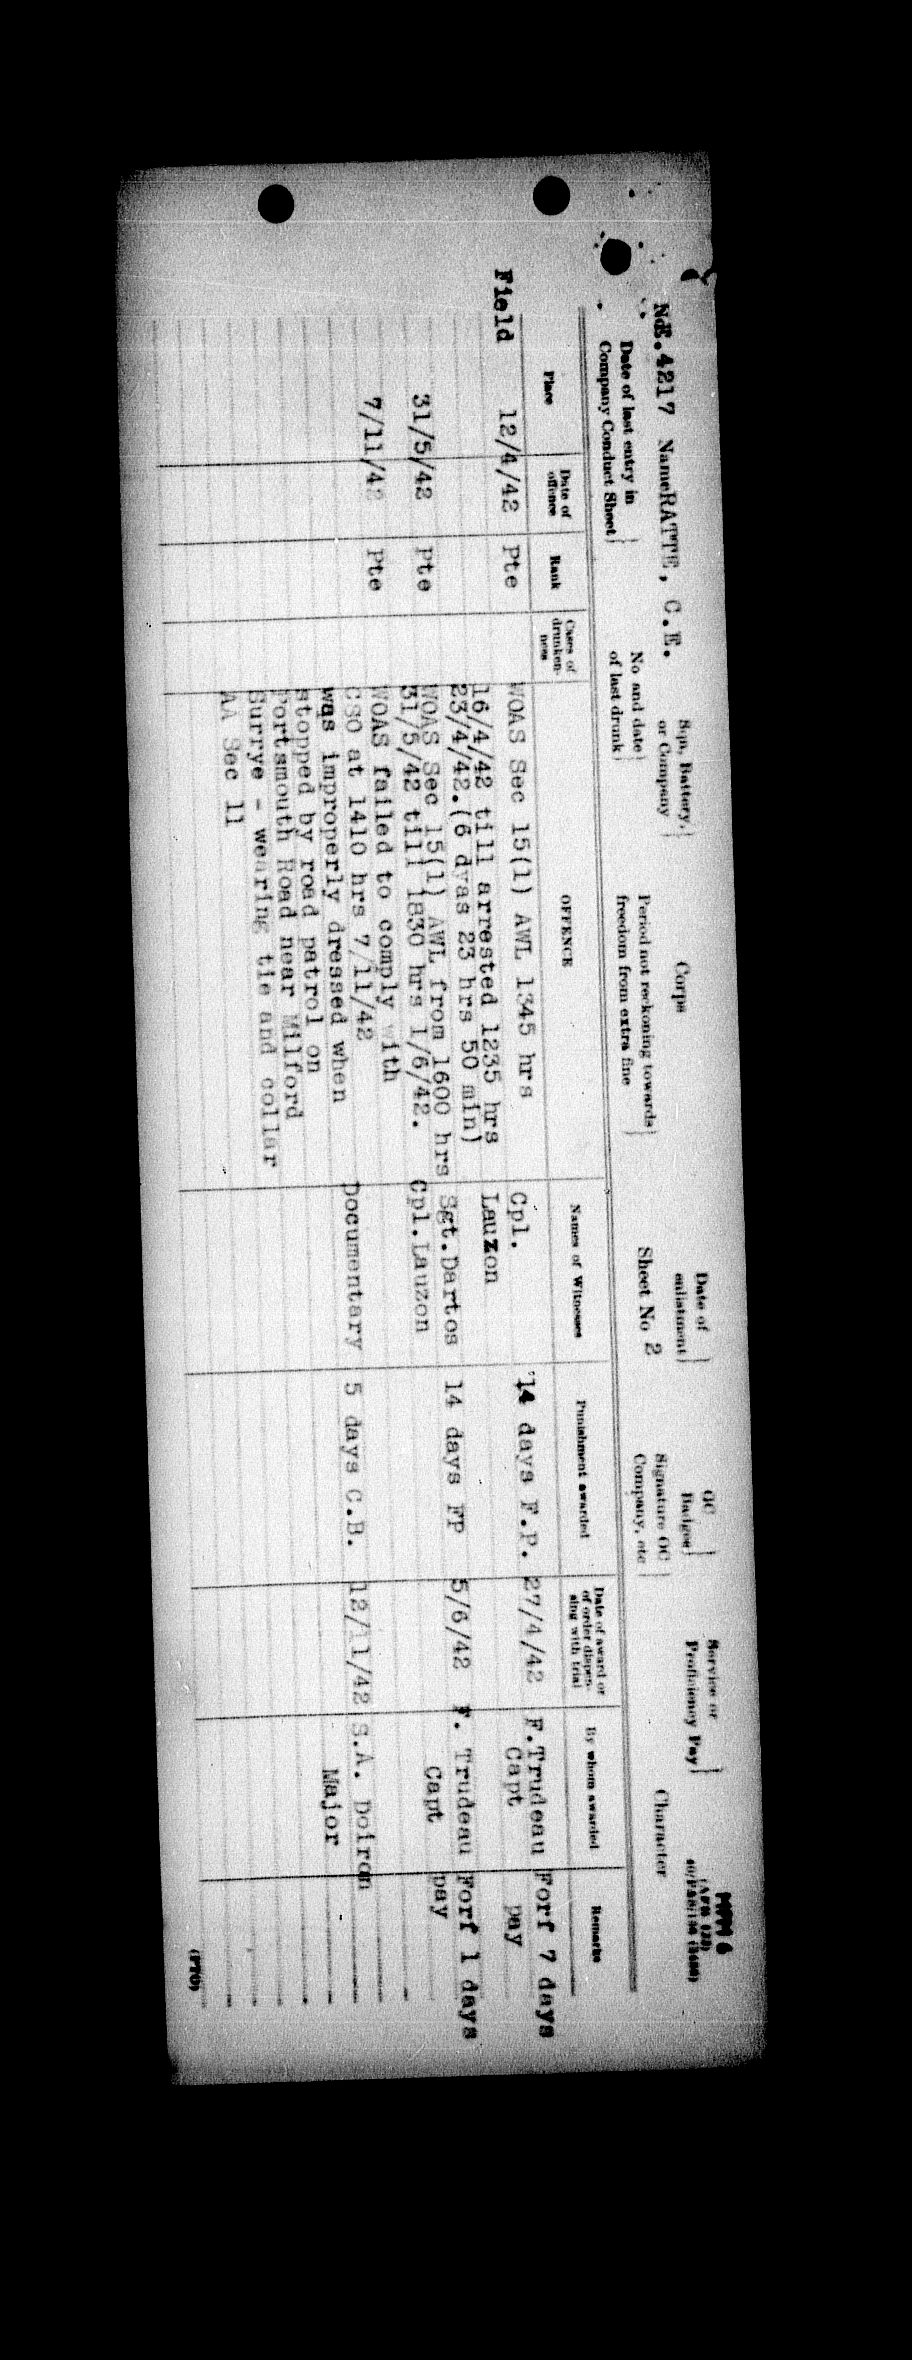 MFM 6
No E.4217 Name RATTE, C.E. Sqn, Battery, or Company Corps Date of enlistment GC Badges Service or Proficiency Pay
Date of last entry in Company Conduct Sheet No and date of last drunk Period not reckoning towards freedom from extra fine Sheet No 2 Signature OC Company, etc Character
Place Date of offence Rank Cases of drunkenness OFFENCE Names of Witnesses Punishment awarded Date of award or of order dispensing with trial By whom awarded Remarks
Field 12/4/42 Pte WOAS Sec 15(1) AWL 1345 hrs Cpl. 14 days F.P. 27/4/42 F.Trudeau Forf 7 days
16/4/42 till arrested 1235 hrs Lauzon Capt pay
23/4/42.(6 dyas 23 hrs 50 min)
31/5/42 Pte WOAS Sec 15(1) AWL from 1600 hrs Sgt.Dartos 14 days FP 5/6/42 F. Trudeau Forf 1 days
31/5/42 till 1830 hrs 1/6/42. Cpl.Lauzon Capt pay
7/11/42 Pte WOAS failed to comply with
CSO at 1410 hrs 7/11/42 Documentary 5 days C.B. 12/11/42 S.A. Doiron
was improperly dressed when Major
stopped by road patrol on
Portsmouth Road near Milford
Surrye - wearing tie and collar
AA Sec 11
(PTO)